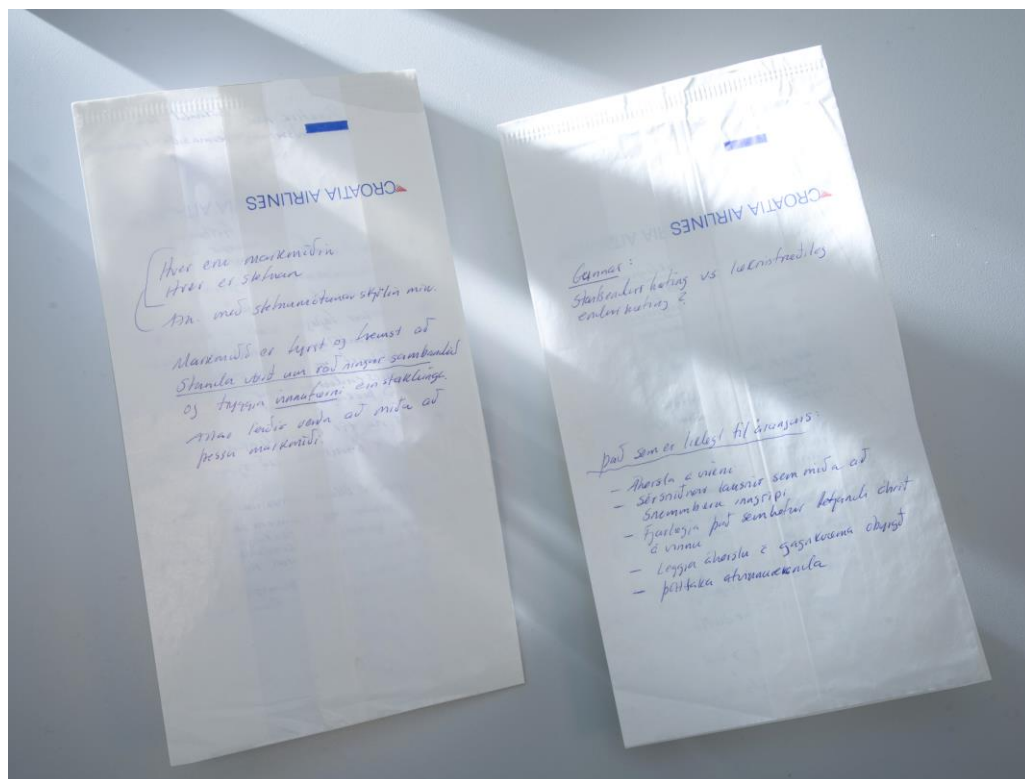 CROATIA AIRLINES
Hver eru markmiðin
Hver er stefnan
Ath. með stefnumótuninni skýrslu mín.
Markmið er fyrst og fremst að
Standa vörð um ráðningarsambandið
og tryggja vinnufærni einstaklinga.
Allar leiðir verða að miða að
þessu markmiði.
CROATIA AIRLINES
Gunnar:
Starfsendurhæfing vs læknisfræðileg
endurhæfing?
Það sem er líklegt til árangurs:
- Áhersla á virkni
- Sérsniðnar lausnir sem miða að
snemmbæru inngripi
- Fjarlægja það sem hefur letjandi áhrif
á vinnu
- Leggja áherslu á gagnkvæma ábyrgð
- þátttaka atvinnurekenda